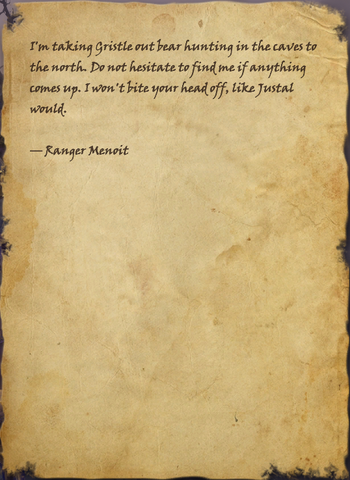 I'm taking Gristle out bear hunting in the caves to
the north. Do not hesitate to find me if anything
comes up. I won't bite your head off, like Justal
would.
— Ranger Menoit